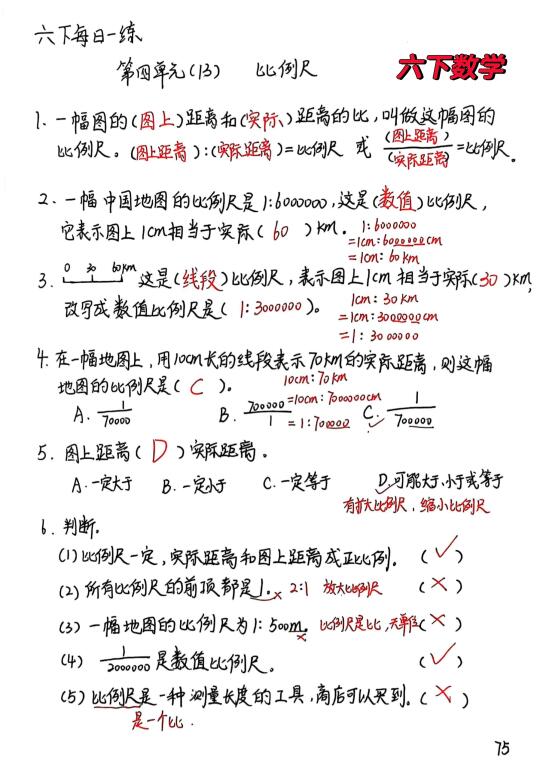 六下每日一练
第四单元(13) 比例尺
六下数学
1. 一幅图的(图上)距离和(实际)距离的比，叫做这幅图的
比例尺。(图上距离):(实际距离)=比例尺 或 (图上距离)/(实际距离)=比例尺。
2. 一幅中国地图的比例尺是1:6000000，这是(数值)比例尺，
它表示图上1cm相当于实际(60)km。 1:6000000
=1cm:6000000cm
=1cm:60km
3. 0 30 60km 这是(线段)比例尺，表示图上1cm相当于实际(30)km，
改写成数值比例尺是(1:3000000)。 1cm:30km
=1cm:3000000cm
=1:3000000
4. 在一幅地图上，用10cm长的线段表示70km的实际距离，则这幅
地图的比例尺是(C)。 10cm:70km
=10cm:7000000cm
A. 1/70000 B. 700000/1 =1:700000 C. 1/700000
5. 图上距离(D)实际距离。
A. 一定大于 B. 一定小于 C. 一定等于 D. 可能大于、小于或等于
有扩大比例尺，缩小比例尺
6. 判断。
(1) 比例尺一定，实际距离和图上距离成正比例。 (✓)
(2) 所有比例尺的前项都是1。× 2:1 放大比例尺 (×)
(3) 一幅地图的比例尺为1:500m。× 比例尺是比，无单位 (×)
(4) 1/2000000 是数值比例尺。 (✓)
(5) 比例尺是一种测量长度的工具，商店可以买到。(×)
是一个比.
75